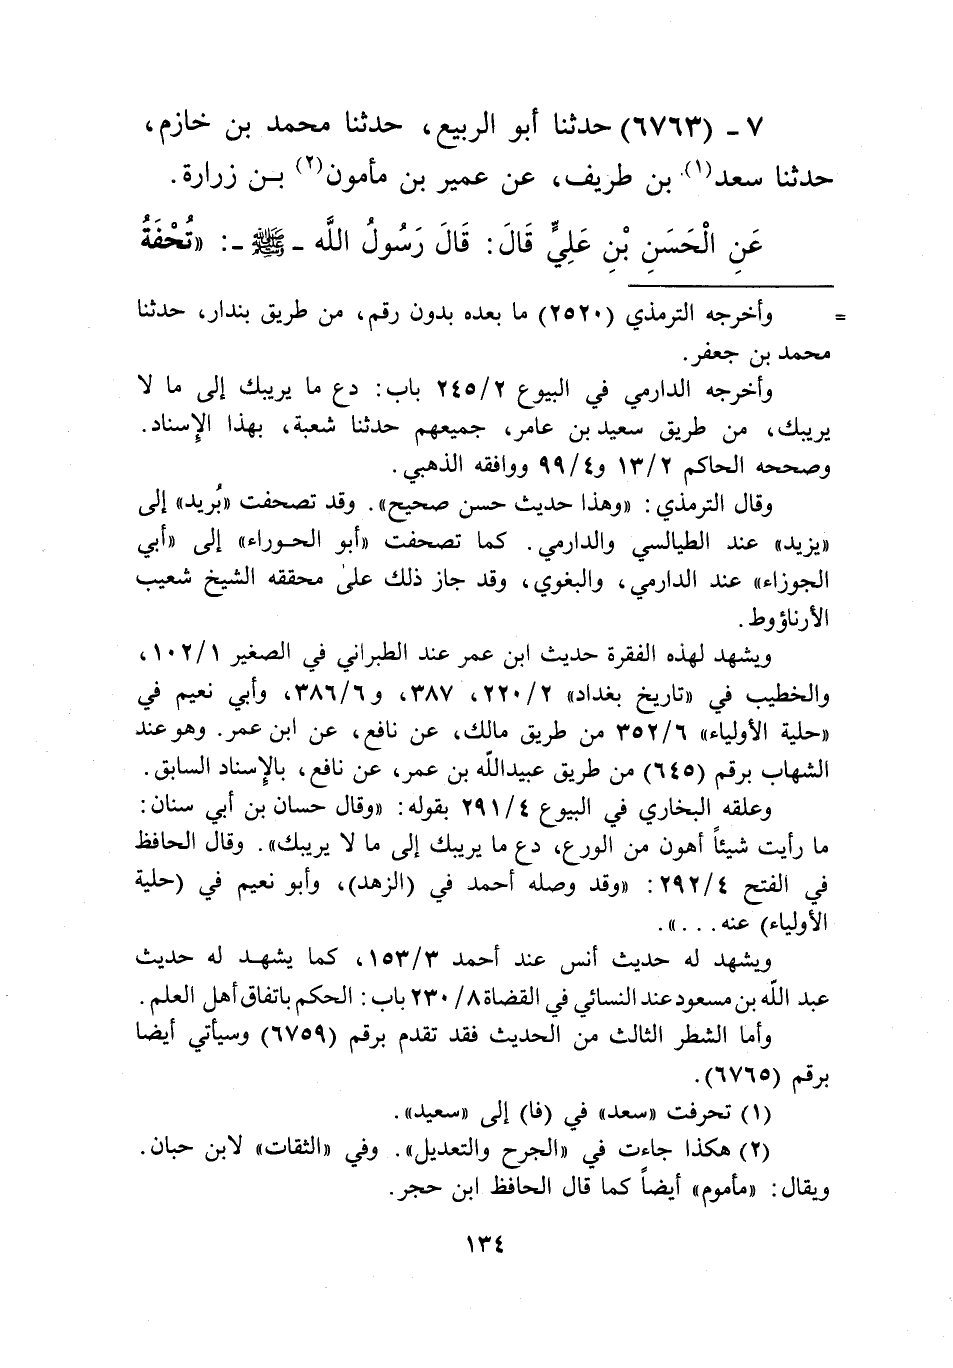 ٧ - (٦٧٦٣) حدثنا أبو الربيع، حدثنا محمد بن خازم،
حدثنا سعد(١) بن طريف، عن عمير بن مأمون(٢) بـن زرارة.
عَنِ الْحَسَنِ بْنِ عَلِيٍّ قَالَ: قَالَ رَسُولُ اللَّه - ﷺ -: «تُحْفَةُ
= وأخرجه الترمذي (٢٥٢٠) ما بعده بدون رقم، من طريق بندار، حدثنا
محمد بن جعفر.
وأخرجه الدارمي في البيوع ٢/٢٤٥ باب: دع ما يريبك إلى ما لا
يريبك، من طريق سعيد بن عامر، جميعهم حدثنا شعبة، بهذا الإسناد.
وصححه الحاكم ٢/١٣ و٤/٩٩ ووافقه الذهبي.
وقال الترمذي: «وهذا حديث حسن صحيح». وقد تصحفت «بُريد» إلى
«يزيد» عند الطيالسي والدارمي. كما تصحفت «أبو الحـوراء» إلى «أبي
الجوزاء» عند الدارمي، والبغوي، وقد جاز ذلك علىٰ محققه الشيخ شعيب
الأرناؤوط.
ويشهد لهذه الفقرة حديث ابن عمر عند الطبراني في الصغير ١/١٠٢،
والخطيب في «تاريخ بغداد» ٢/٢٢٠، ٣٨٧، و٦/٣٨٦، وأبي نعيم في
«حلية الأولياء» ٦/٣٥٢ من طريق مالك، عن نافع، عن ابن عمر. وهو عند
الشهاب برقم (٦٤٥) من طريق عبيداللَّه بن عمر، عن نافع، بالإسناد السابق.
وعلقه البخاري في البيوع ٤/٢٩١ بقوله: «وقال حسان بن أبي سنان:
ما رأيت شيئاً أهون من الورع، دع ما يريبك إلى ما لا يريبك». وقال الحافظ
في الفتح ٤/٢٩٢: «وقد وصله أحمد في (الزهد)، وأبو نعيم في (حلية
الأولياء) عنه...».
ويشهد له حديث أنس عند أحمد ٣/١٥٣، كما يشهـد له حديث
عبد اللَّه بن مسعود عند النسائي في القضاة ٨/٢٣٠ باب: الحكم باتفاق أهل العلم.
وأما الشطر الثالث من الحديث فقد تقدم برقم (٦٧٥٩) وسيأتي أيضا
برقم (٦٧٦٥).
(١) تحرفت «سعد» في (فا) إلى «سعيد».
(٢) هكذا جاءت في «الجرح والتعديل». وفي «الثقات» لابن حبان.
ويقال: «مأموم» أيضاً كما قال الحافظ ابن حجر.
١٣٤